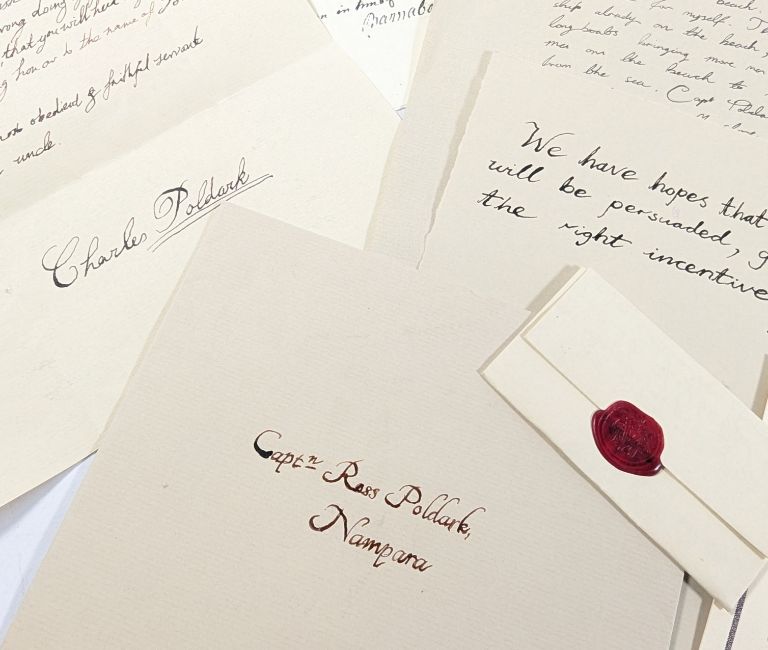 rong doing
that you will
hon or to the name of
most obedient & faithful servant
uncle.
Charles Poldark
in
Barnabo
beach.
for myself.
ship already on the beach,
longboats bringing more men
men on the beach to
from the sea. Capt Polda
We have hopes that
will be persuaded, g
the right incentive
Captn Ross Poldark,
Nampara